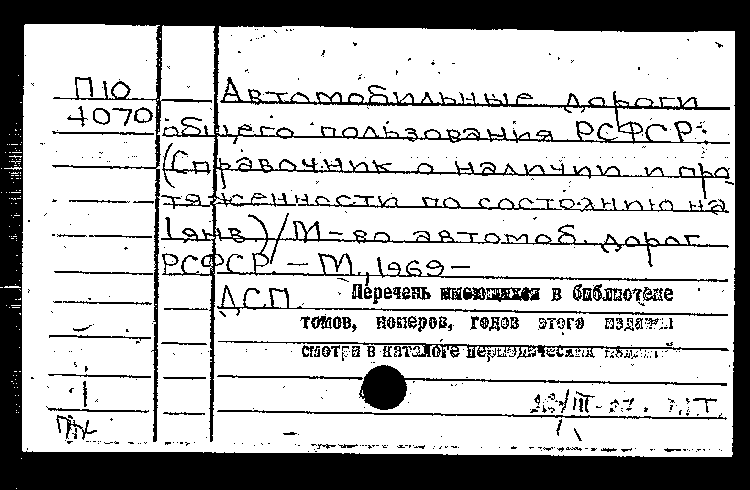 П10
4070
Автомобильные дороги
общего пользования РСФСР:
(Справочник о наличии и про
тяженности по состоянию на
1 янв.)/М-во автомоб. дорог
РСФСР. — М., 1969 —
ДСП
Перечень имеющихся в библиотеке
томов, номеров, годов этого издания
смотри в каталоге периодических изданий